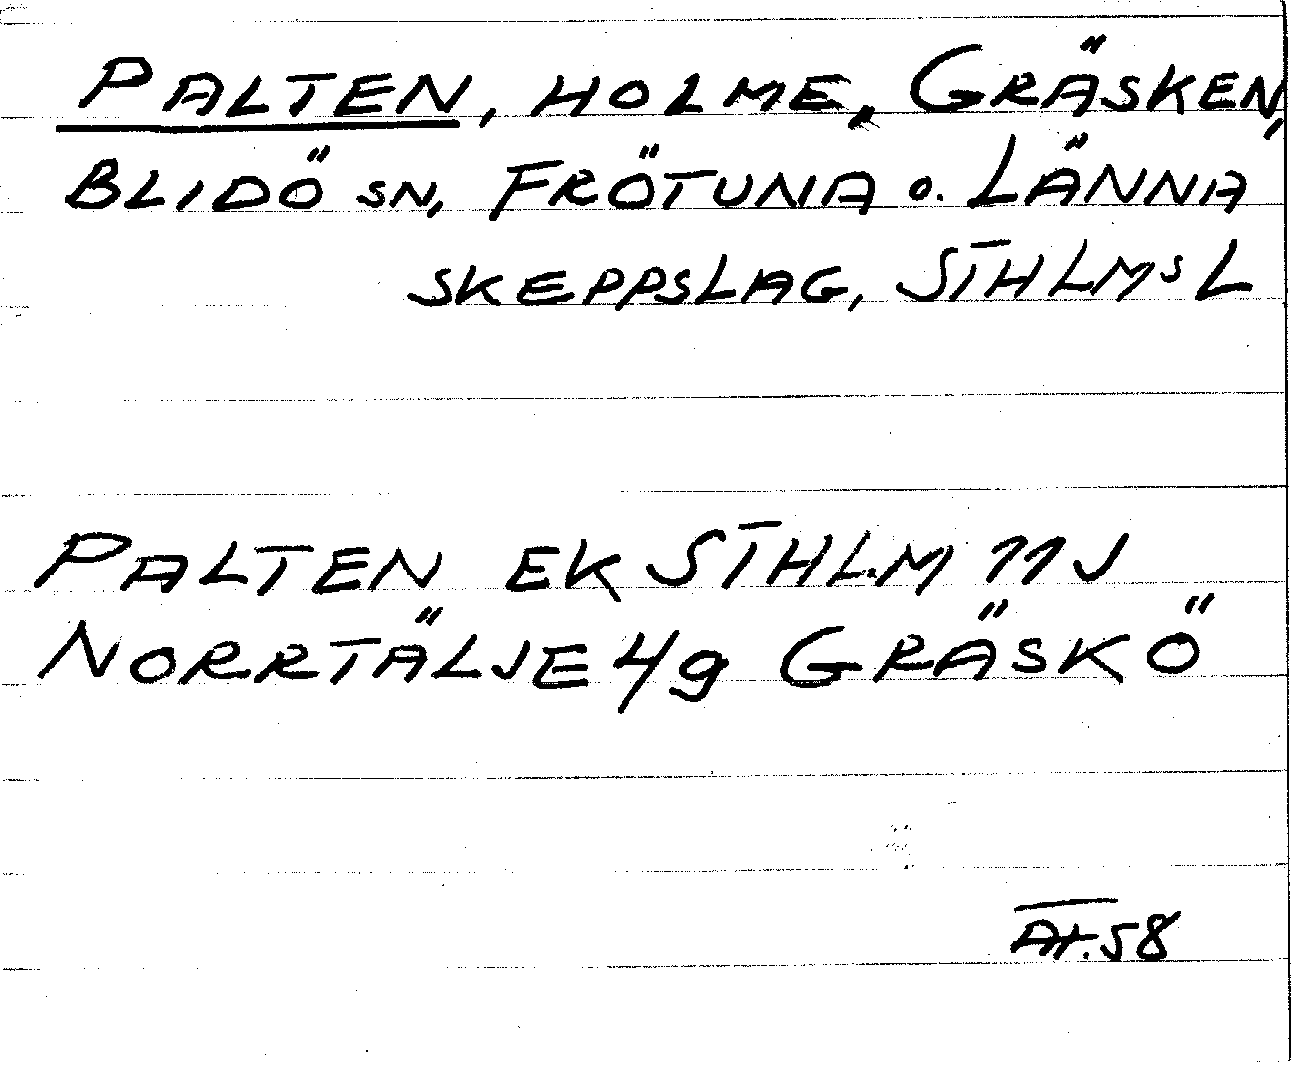 PALTEN, HOLME, GRÄSKEN,
BLIDÖ SN, FRÖTUNA o. LÄNNA
SKEPPSLAG, STHLMS L
PALTEN EK STHLM 11J
NORRTÄLJE 4g GRÄSKÖ
At. 58